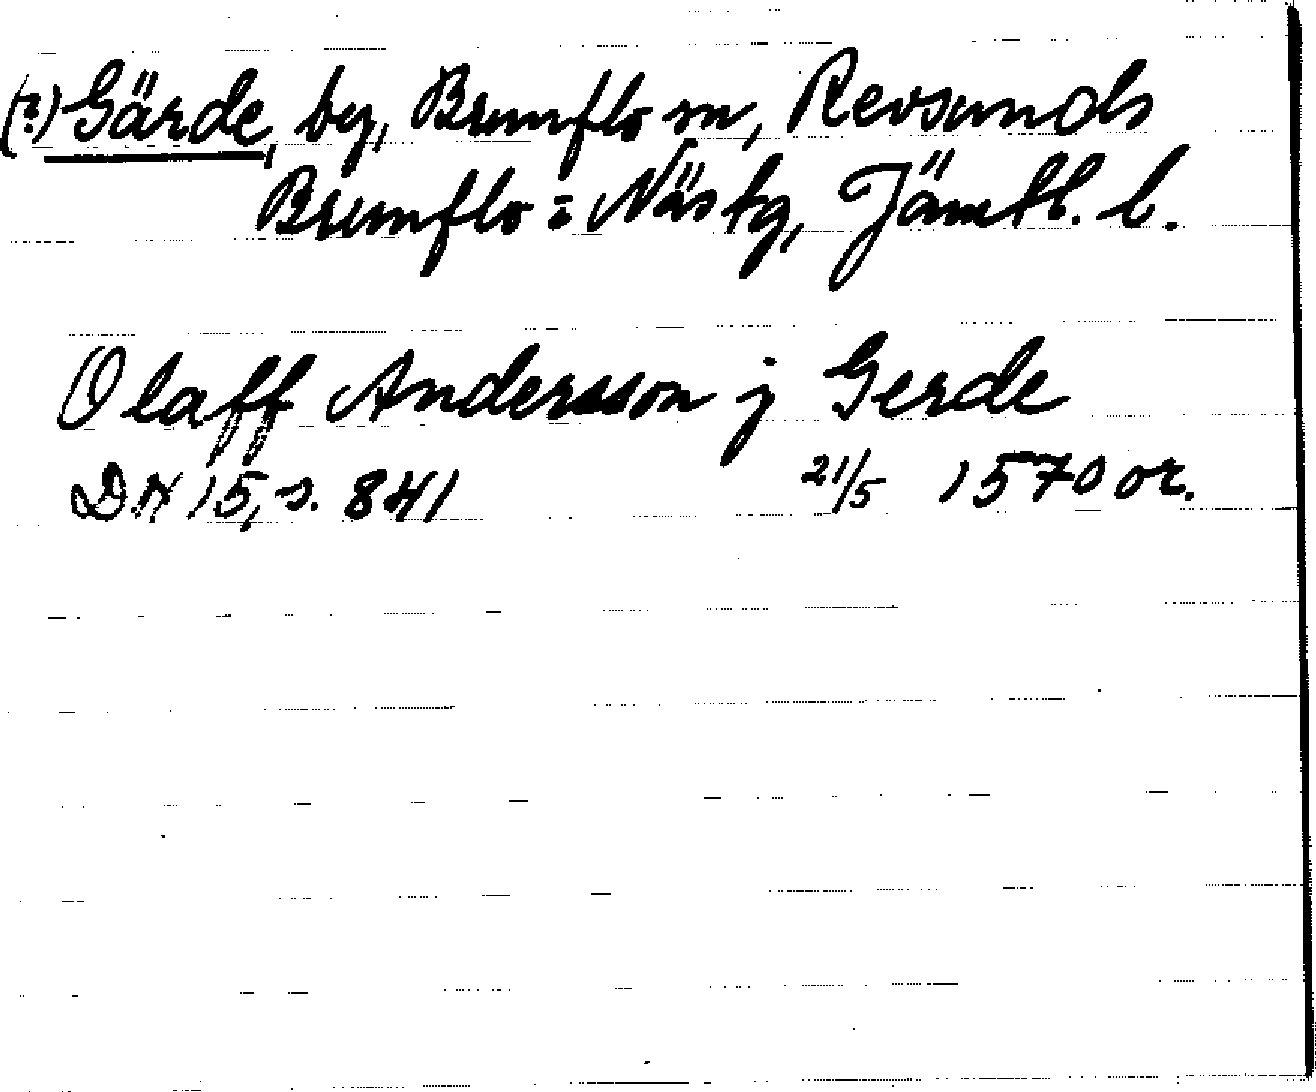 (?) Gärde, by, Brunflo sn, Revsunds
Brunflo = Näs tg, Jämtl. l.
Olaff Andersson j Gerde
DN 15, s. 841 21/5 1570 or.